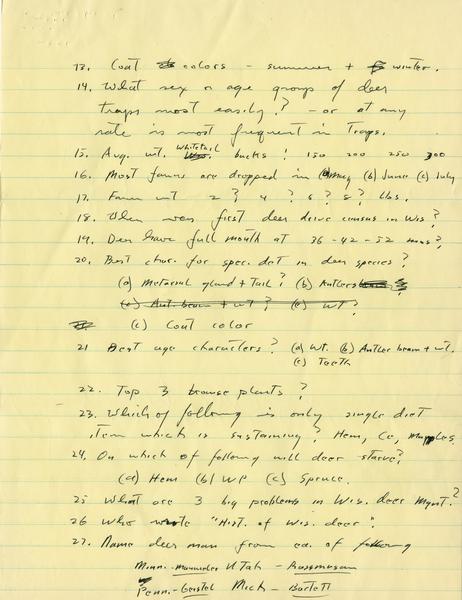 13. Coat colors - summer + winter.
14. What sex or age group of deer
traps most easily? - or at any
rate is most frequent in Traps.
15. Avg. wt. Whitetail bucks! 150 200 250 300
16. Most fawns are dropped in (a) May (b) June (c) July
17. Fawn wt 2? 4? 6? 8? lbs.
18. When was first deer drive census in Wis?
19. Deer have full mouth at 36-42-52 mos?
20. Best char. for spec. det in deer species?
(a) Metatarsal gland + Tail? (b) Antlers
(c) Ant. beam + wt? (c) WT?
(c) Coat color
21 Best age characters? (a) Wt. (b) Antler beam + wt.
(c) Teeth
22. Top 3 browse plants?
23. Which of following is only single diet
item which is sustaining? Hem, Ce, Maples
24. On which of following will deer starve?
(a) Hem (b) WP (c) Spruce.
25 What are 3 big problems in Wis. deer Mgmt.?
26 Who wrote "Hist. of Wis. deer".
27. Name deer man from ea. of following
Minn. - Utah - Rasmussen
Penn. - Gerstel Mich - Bartlett